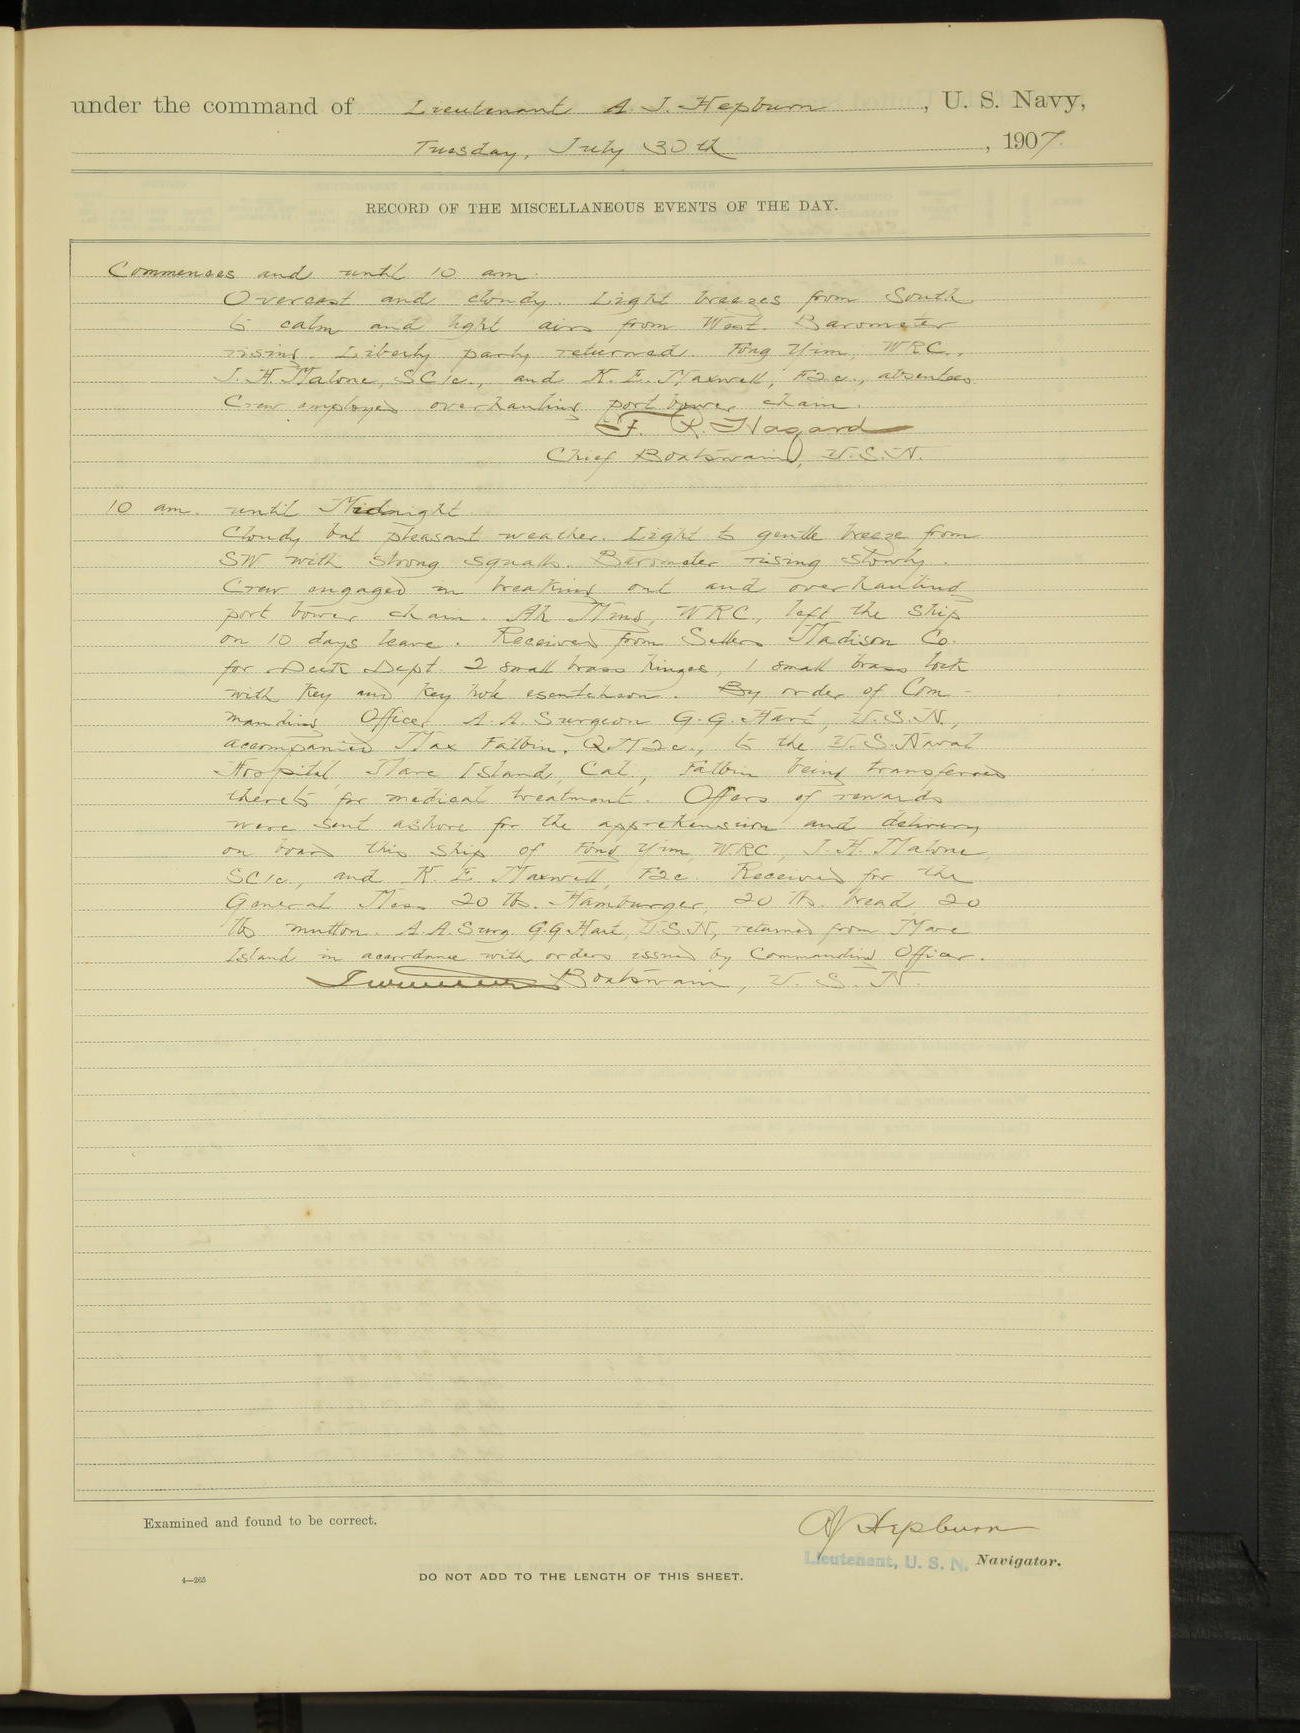 under the command of Lieutenant A. J. Hepburn, U. S. Navy,
Tuesday, July 30th, 1907.
RECORD OF THE MISCELLANEOUS EVENTS OF THE DAY.
Commences and until 10 am.
Overcast and cloudy. Light breezes from South
to calm and light airs from West. Barometer
rising. Liberty party returned. Fong Yim, WRC.,
J. H. Malone, SC1c., and K. E. Maxwell, F2c., absentees.
Crew employed overhauling port bower chain.
F. R. Hazard
Chief Boatswain, U.S.N.
10 am. until Midnight
Cloudy but pleasant weather. Light to gentle breeze from
SW with strong squalls. Barometer rising slowly.
Crew engaged in breaking out and overhauling
port bower chain. Ah Ming, WRC., left the ship
on 10 days leave. Received from Sellers Madison Co.
for Deck Dept. 2 small brass hinges, 1 small brass lock
with key and key hole esentcheon. By order of Com-
manding Officer A. A. Surgeon G. G. Hart, U.S.N.,
accompanied Max Fatbin, QM2c., to the U.S. Naval
Hospital, Mare Island, Cal., Fatbin being transferred
thereto for medical treatment. Offers of rewards
were sent ashore for the apprehension and delivery
on board this ship of Fong Yim, WRC., J. H. Malone,
SC1c., and K. E. Maxwell, F2c. Received for the
General Mess 20 lbs. Hamburger, 20 lbs. bread, 20
lbs mutton. A. A. Surg. G.G. Hart, U.S.N., returned from Mare
Island in accordance with orders issued by Commanding Officer.
Boatswain, U. S. N.
Examined and found to be correct.
AJ Hepburn
Lieutenant, U. S. N. Navigator.
4—265
DO NOT ADD TO THE LENGTH OF THIS SHEET.